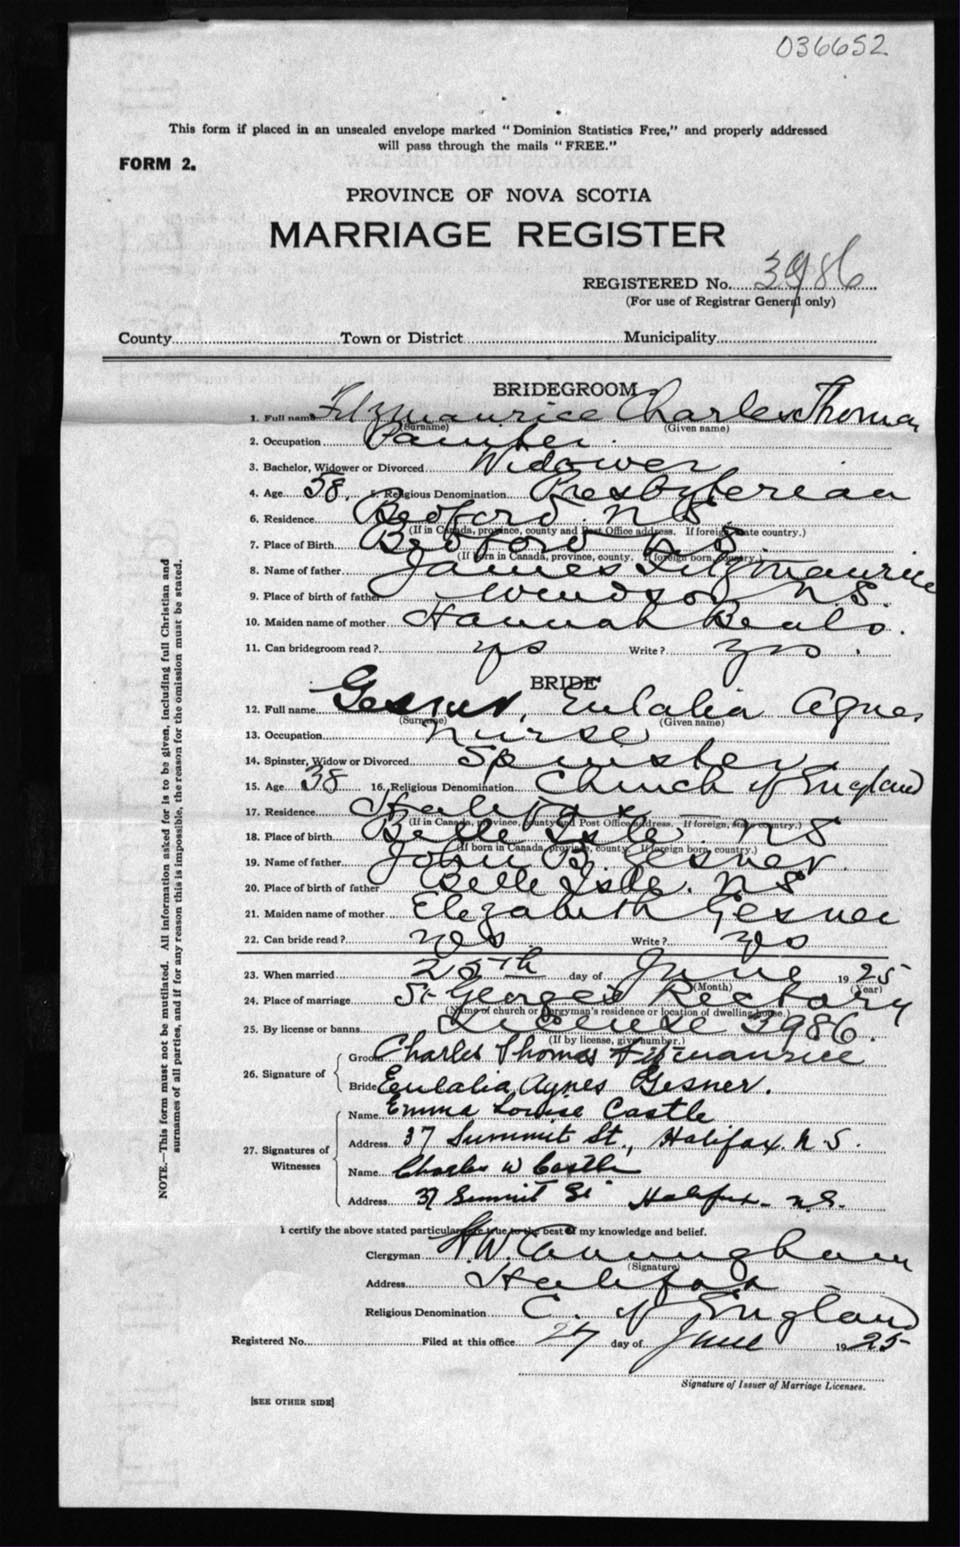 036652
This form if placed in an unsealed envelope marked "Dominion Statistics Free," and properly addressed
will pass through the mails "FREE."
FORM 2.
PROVINCE OF NOVA SCOTIA
MARRIAGE REGISTER
REGISTERED No. 3986
(For use of Registrar General only)
County Town or District Municipality
BRIDEGROOM
1. Full name Fitzmaurice Charles Thomas
(Surname) (Given name)
2. Occupation Painter.
3. Bachelor, Widower or Divorced Widower
4. Age 58. 5. Religious Denomination Presbyterian
6. Residence Bedford N S
(If in Canada, province, county and Post Office address. If foreign, state country.)
7. Place of Birth Bedford N S
(If born in Canada, province, county. If foreign born, country.)
8. Name of father James Fitzmaurice
9. Place of birth of father Windsor N.S.
10. Maiden name of mother Hannah Beals.
11. Can bridegroom read? yes Write? yes.
BRIDE
12. Full name Gesner, Eulalia Agnes
(Surname) (Given name)
13. Occupation Nurse
14. Spinster, Widow or Divorced Spinster
15. Age 38 16. Religious Denomination Church of England
17. Residence Halifax
(If in Canada, province, county and Post Office address. If foreign, state country.)
18. Place of birth Belle Isle. N S
(If born in Canada, province, county. If foreign born, country.)
19. Name of father John B. Gesner.
20. Place of birth of father Belle Isle. N S
21. Maiden name of mother Elizabeth Gesner
22. Can bride read? yes Write? yes
23. When married 25th day of June 1925
(Month) (Year)
24. Place of marriage St George's Rectory
(Name of church or clergyman's residence or location of dwelling house.)
25. By license or banns License 3986.
(If by license, give number.)
26. Signature of
Groom Charles Thomas Fitzmaurice
Bride Eulalia Agnes Gesner.
27. Signatures of Witnesses
Name Emma Louise Castle
Address 37 Summit St., Halifax N S.
Name Charles W Castle
Address 37 Summit St Halifax N.S.
I certify the above stated particulars are true to the best of my knowledge and belief.
Clergyman H. W. Cunningham
(Signature)
Address Halifax
Religious Denomination C. of England
Registered No. Filed at this office 27 day of June 1925
Signature of Issuer of Marriage Licenses.
[SEE OTHER SIDE]
NOTE.—This form must not be mutilated. All information asked for is to be given, including full Christian and
surnames of all parties, and if for any reason this is impossible, the reason for the omission must be stated.